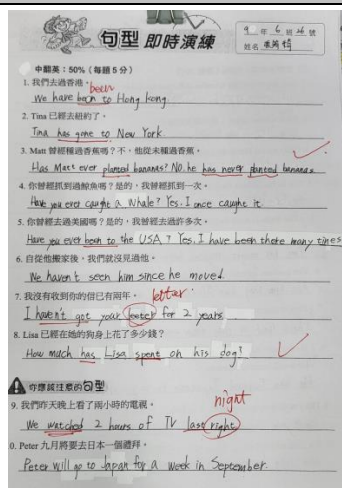 句型 即時演練
年 6 班 26 號
姓名
中翻英：50%（每題 5 分）
1. 我們去過香港。 been
We have been to Hong Kong.
2. Tina 已經去紐約了。
Tina has gone to New York.
3. Matt 曾經種過香蕉嗎？不，他從未種過香蕉。
Has Matt ever planted bananas? NO, he has never planted bananas
4. 你曾經抓到過鯨魚嗎？是的，我曾經抓到一次。
Have you ever caught a whale? Yes. I once caught it.
5. 你曾經去過美國嗎？是的，我曾經去過許多次。
Have you ever been to the USA? Yes. I have been there many times
6. 自從他搬家後，我們就沒見過他。
We haven't seen him since he moved.
7. 我沒有收到你的信已有兩年。 letter
I haven't got your leeter for 2 years
8. Lisa 已經在她的狗身上花了多少錢？
How much has Lisa spent on his dog?
你應該注意的句型
night
9. 我們昨天晚上看了兩小時的電視。
We watched 2 hours of TV last right.
0. Peter 九月將要去日本一個禮拜。
Peter will go to Japan for a week in September.